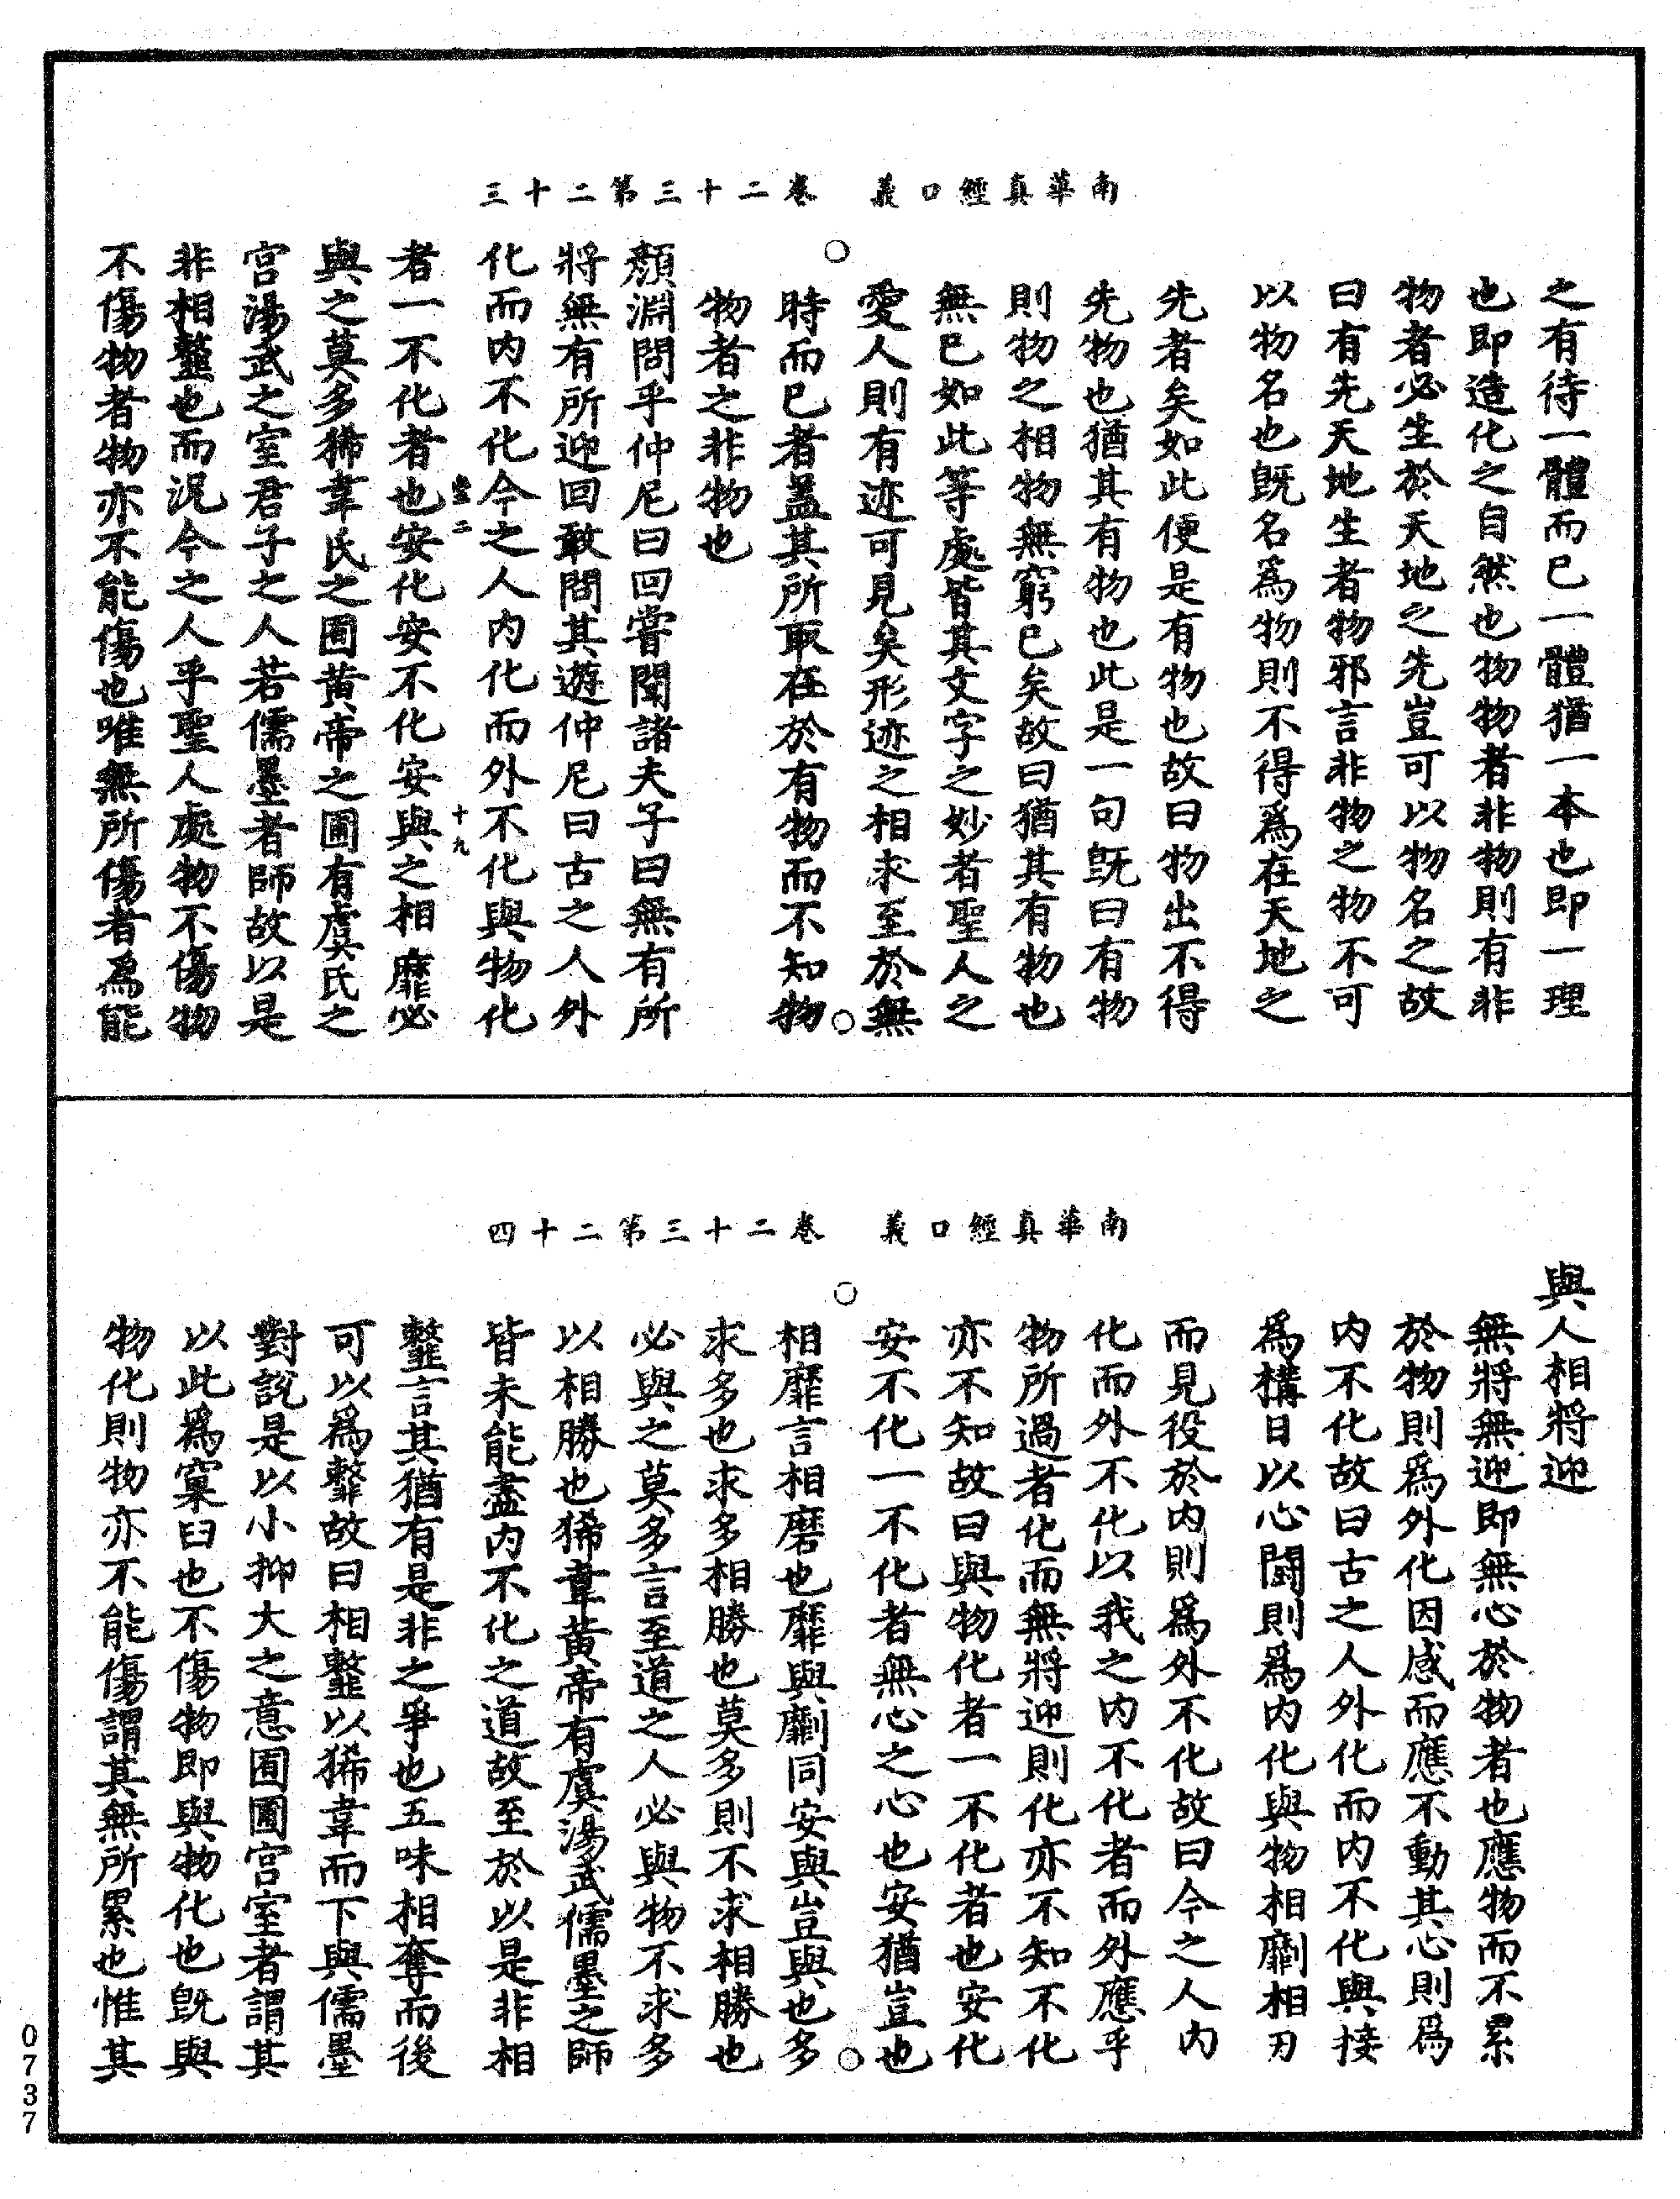 南華真經口義　卷二十三第二十三
之有待一體而已一體猶一本也即一理
也即造化之自然也物物者非物則有非
物者必生於天地之先豈可以物名之故
曰有先天地生者物邪言非物之物不可
以物名也既名為物則不得爲在天地之
先者矣如此便是有物也故曰物出不得
先物也猶其有物也此是一句既曰有物
則物之相物無窮已矣故曰猶其有物也
無已如此等處皆其文字之妙者聖人之
愛人則有迹可見矣形迹之相求至於無
時而已者蓋其所取在於有物而不知物
物者之非物也
顏淵問乎仲尼曰回嘗聞諸夫子曰無有所
將無有所迎回敢問其遊仲尼曰古之人外
化而内不化今之人内化而外不化與物化
十九
者一不化者也安化安不化安與之相靡必
與之莫多狶韋氏之囿黃帝之圃有虞氏之
宮湯武之室君子之人若儒墨者師故以是
非相䪠也而況今之人乎聖人處物不傷物
不傷物者物亦不能傷也唯無所傷者爲能
南華真經口義　卷二十三第二十四
與人相將迎
無將無迎即無心於物者也應物而不累
於物則爲外化因感而應不動其心則爲
内不化故曰古之人外化而内不化與接
爲構日以心鬪則爲内化與物相劘相刃
而見役於内則爲外不化故曰今之人内
化而外不化以我之内不化者而外應乎
物所過者化而無將迎則化亦不知不化
亦不知故曰與物化者一不化者也安化
安不化一不化者無心之心也安猶豈也
相靡言相磨也靡與劘同安與豈與也多
求多也求多相勝也莫多則不求相勝也
必與之莫多言至道之人必與物不求多
以相勝也狶韋黃帝有虞湯武儒墨之師
皆未能盡内不化之道故至於以是非相
䪠言其猶有是非之爭也五味相奪而後
可以爲䪠故曰相䪠以狶韋而下與儒墨
對說是以小抑大之意囿圃宮室者謂其
以此爲窠臼也不傷物即與物化也既與
物化則物亦不能傷謂其無所累也惟其
0737